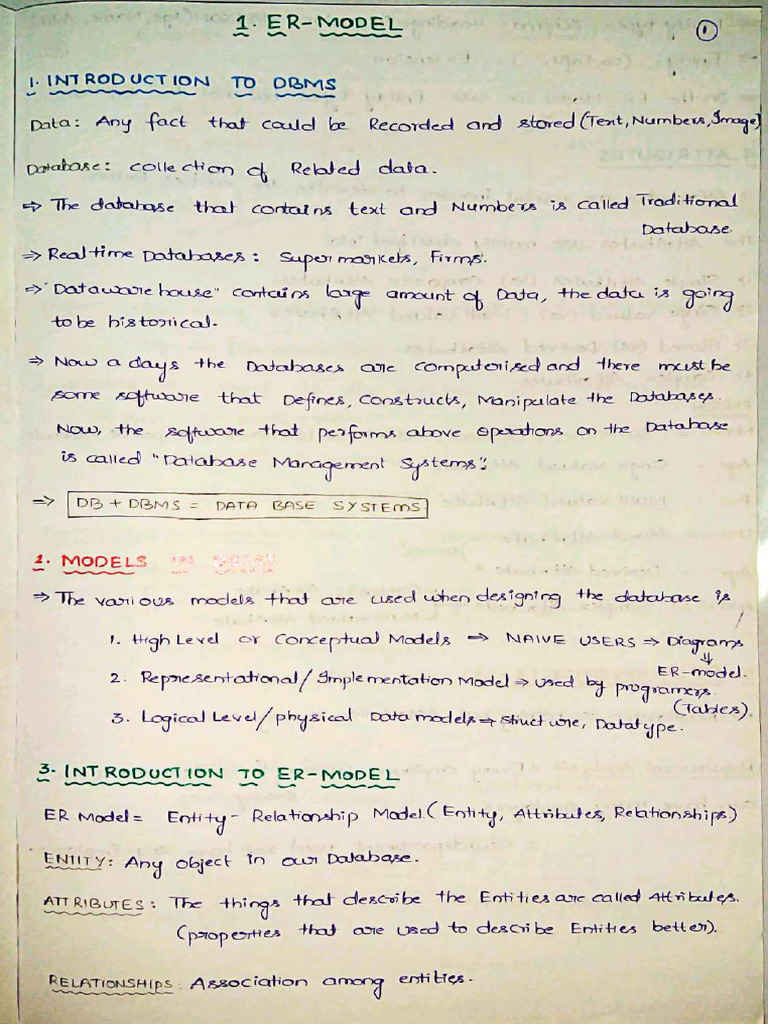 1. ER-MODEL
1
1. INTRODUCTION TO DBMS
Data: Any fact that could be Recorded and stored (Text, Numbers, Image)
Database: collection of Related data.
⇒ The database that contains text and Numbers is called Traditional
Database.
⇒ Real time Databases: Super markets, Firms.
⇒ "Dataware house" contains large amount of Data, the data is going
to be historical.
⇒ Now a days the Databases are computerised and there must be
some software that Defines, Constructs, Manipulate the Databases.
Now, the software that performs above operations on the Database
is called "Database Management Systems".
⇒ DB + DBMS = DATA BASE SYSTEMS
2. MODELS IN
⇒ The various models that are used when designing the database is
1. High Level or Conceptual Models ⇒ NAIVE USERS ⇒ Diagrams
⇓
ER-model.
2. Representational/Implementation Model ⇒ used by programers.
(Tables).
3. Logical Level/physical Data models ⇒ structure, Datatype.
3. INTRODUCTION TO ER-MODEL
ER Model = Entity-Relationship Model. (Entity, Attributes, Relationships)
ENTITY: Any object in our Database.
ATTRIBUTES: The things that describe the Entities are called Attributes.
(properties that are used to describe Entities better).
RELATIONSHIPS: Association among entities.